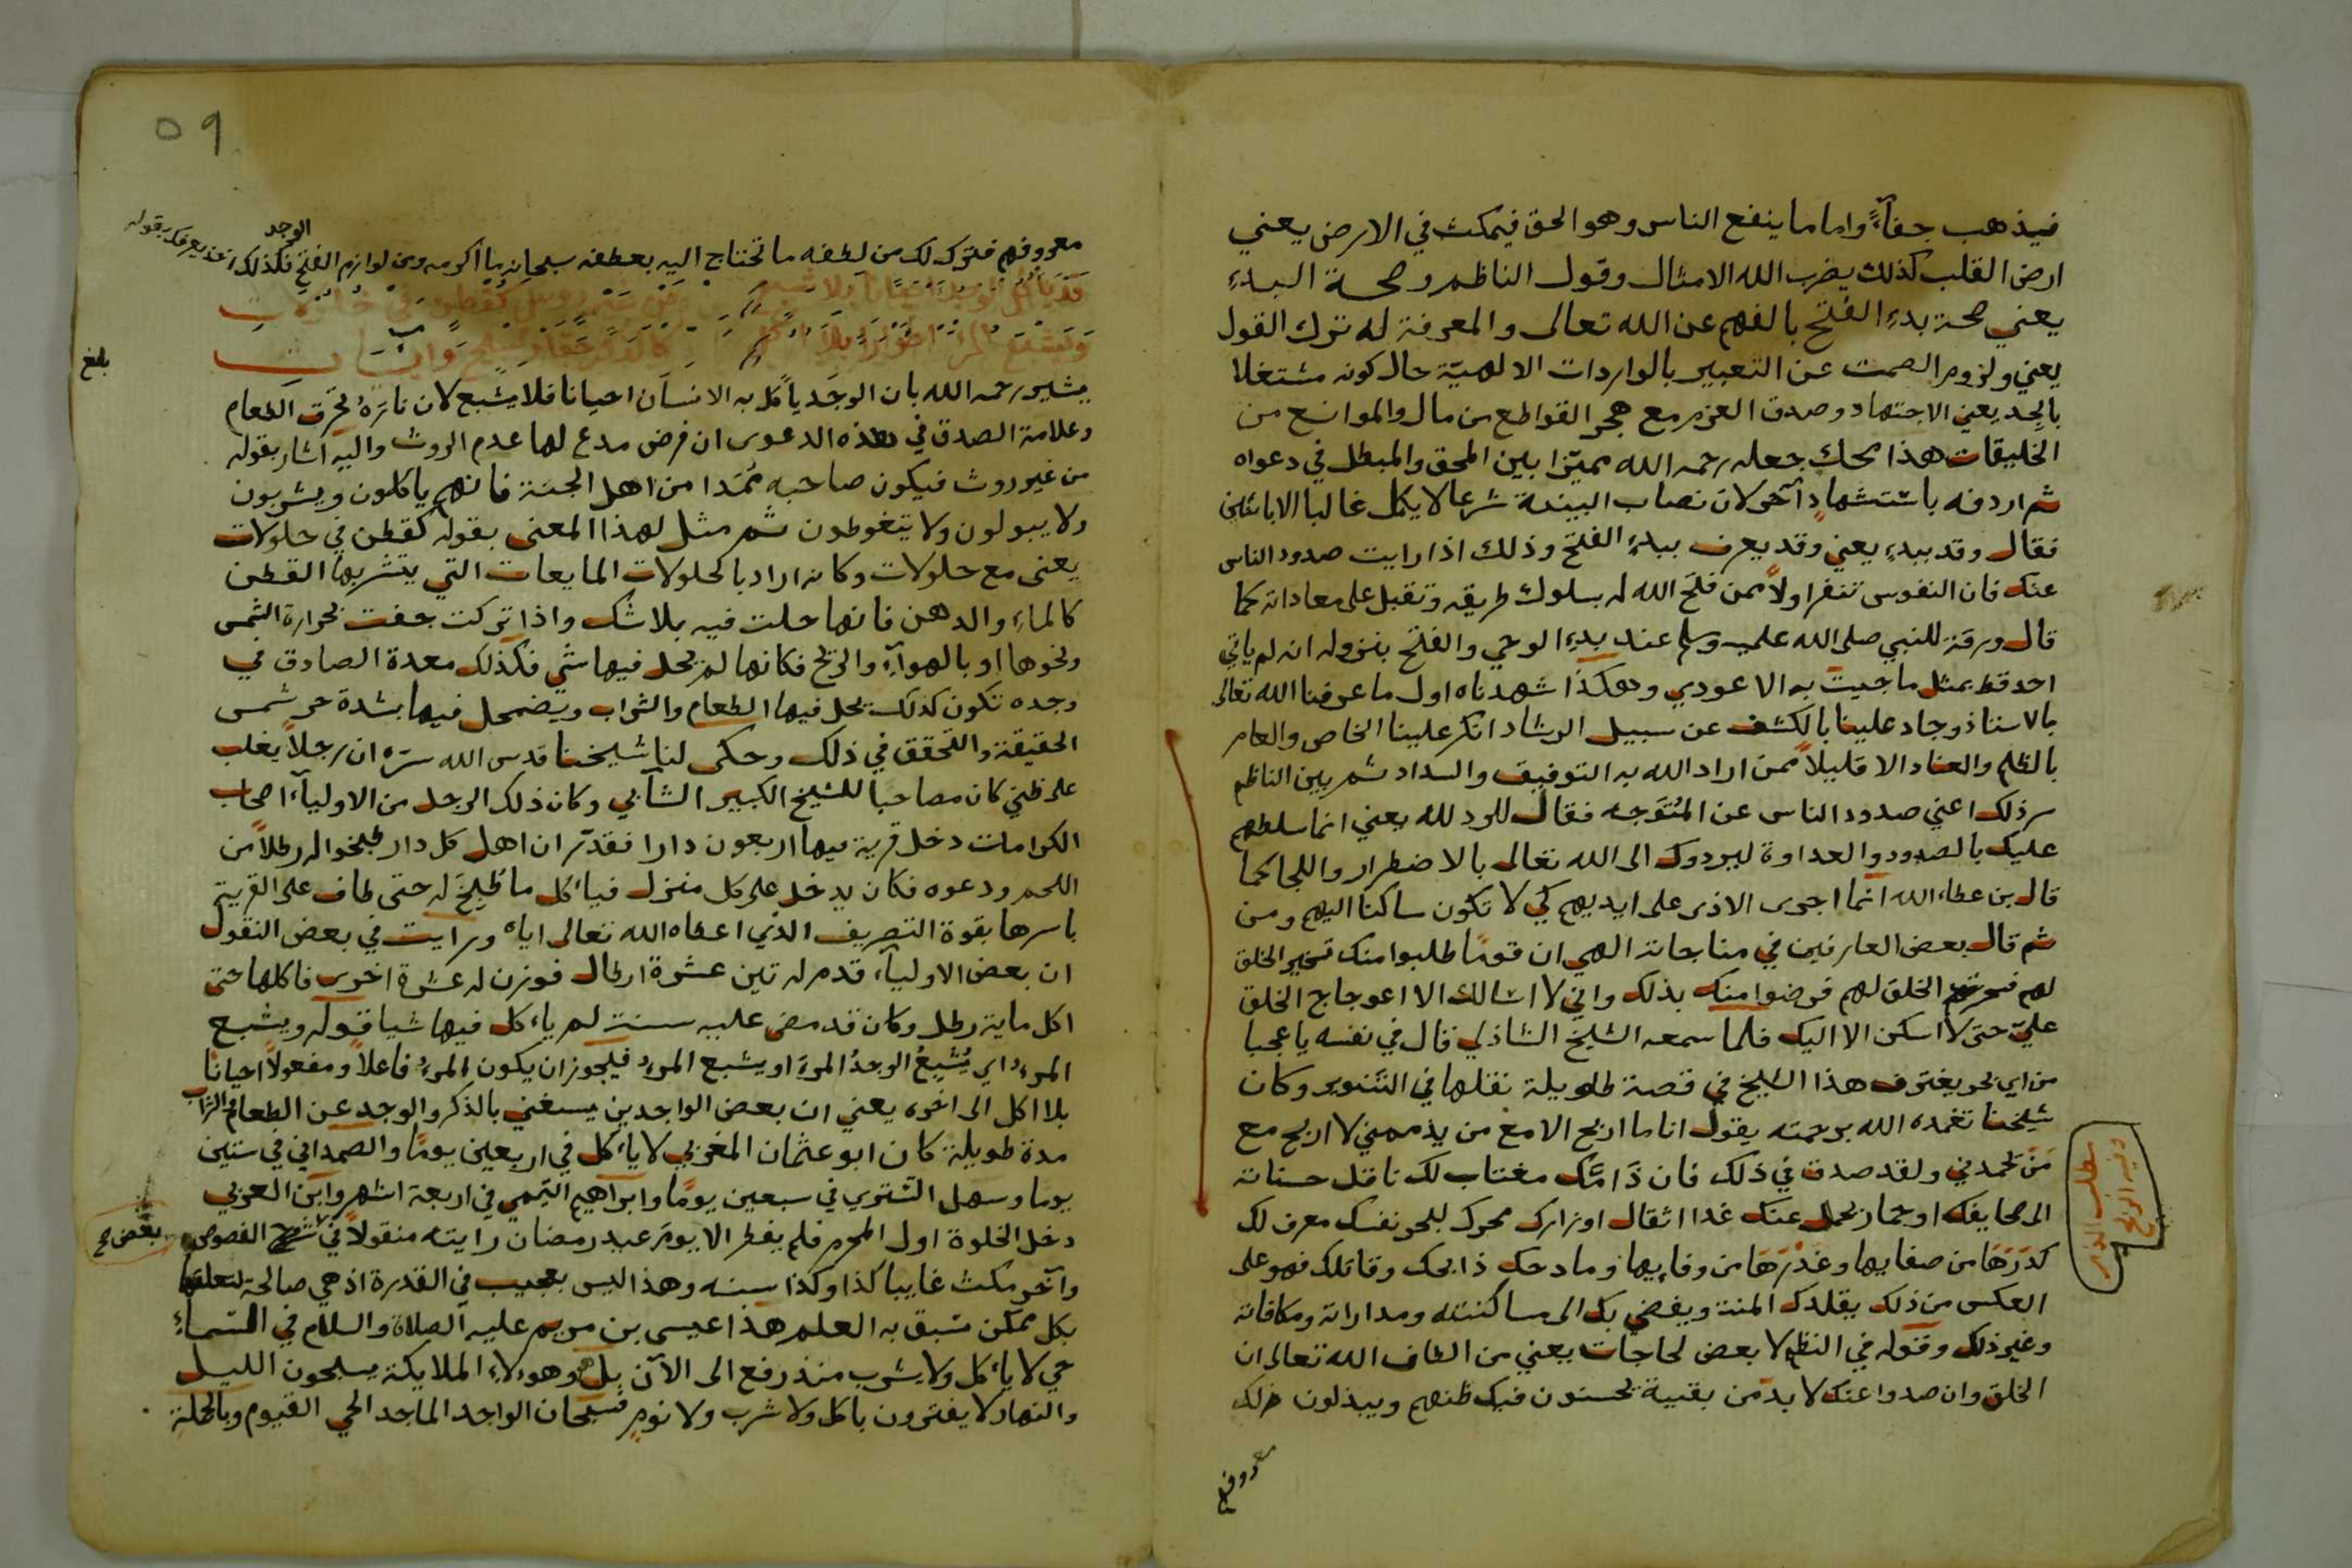 فيذهب جفآءً واما ما ينفع الناس وهو الحق فيمكث في الارض يعني
ارض القلب كذلك يضرب الله الامثال وقول الناظم وصحة البدء
يعني صحة بدء الفتح بالفهم عن الله تعالى والمعرفة له ترك القول
يعني ولزوم الصمت عن التعبير بالواردات الالهيّة حال كونه مشتغلا
بالجد يعني الاجتهاد وصدق العزم مع هجر القواطع من مال والموانع من
الخليقات هذا محك جعله رحمه الله مميّزا بين المحق والمبطل في دعواه
ثم اردفه باستشهادٍ آخر لان نصاب البينة شرعا لا يكمل غالبا الا باثنين
فقال وقد ببدء يعني وقد يعرف ببدء الفتح وذلك اذا رايت صدود الناس
عنك فان النفوس تنفر اولاً ممن فتح الله له بسلوك طريقه وتقبل على معاداته كما
قال ورقة للنبي صلى الله عليه وسلم عند بدء الوحي والفتح بنزوله انه لم ياتي
احد قط بمثل ما جيت به الا عودي وهكذا شهدناه اول ما عرفنا الله تعالى
بالاستاذ وجاد علينا بالكشف عن سبيل الرشاد انكر علينا الخاص والعام
بالظلم والعناد الا قليلاً ممن اراد الله به التوفيق والسداد ثم بين الناظم
سر ذلك اعني صدود الناس عن المُتَوَجه فقال للرد لله يعني انما سلطهم
عليك بالصدود والعداوة ليردوك الى الله تعالى بالاضطرار واللجا كما
قال بن عطاء الله انما اجرى الاذى على ايديهم كي لا تكون ساكنا اليهم ومن
ثم قال بعض العارفين في مناجاته الهي ان قومًا طلبوا منك تسخير الخلق
لهم فسخرت لهم الخلق فرضوا منك بذلك واني لا اسالك الا اعوجاج الخلق
عليّ حتى لا اسكن الا اليك فلما سمعه الشيخ الشاذلي قال في نفسه يا عجبا
من اي بحر يغترف هذا الشيخ في قصة طويلة نقلها في التنوير وكان
شيخنا تغمده الله برحمته يقول انا ما اربح الا مع من يذممني لا اربح مع
مَنْ يحمدني ولقد صدق في ذلك فان ذَامّك مغتاب لك ناقل حسناته
الى صحايفك او حمار يحمل عنك غدا اثقال اوزارك محرك لبحر نفسك معرف لك
كدَرَهَا من صفايها وغدْرَهَا من وفايها ومادحك ذابحك وقاتلك فهو على
العكس من ذلك يقلدك المنة ويفضي بك الى مساكنته ومداراته ومكافاته
وغير ذلك وقوله في النظم لا بعض لحاجات يعني من الطاف الله تعالى ان
الخلق وان صدوا عنك لا بدّ من بقية يحسنون فيك ظنهم ويبذلون لك
معروفهم
مطلب
٥٩
معروفهم فترك لك من لطفه ما تحتاج اليه بعطفه سبحانه ما اكرمه ومن لوازم الفتح الوجد فكذلك يعرفك بقوله
وقد ياكل احيانا بلا شبع من غير روث كقطن في حلولات
بلغ
يشير رحمه الله بان الوجد ياكل به الانسان احيانا فلا يشبع لان نارَهُ تحرق الطعام
وعلامة الصدق في هذه الدعوى ان فرض مدع لها عدم الروث واليه اشار بقوله
من غير روث فيكون صاحبه مُمَدا من اهل الجنة فانهم ياكلون ويشربون
ولا يبولون ولا يتغوطون ثم مثل لهذا المعنى بقوله كقطن في حلولات
يعني مع حلولات وكانه اراد بالحلولات المايعات التي يتشربها القطن
كالماء والدهن فانها حلت فيه بلا شك واذا تركت جفت بحرارة الشمس
ونحوها او بالهوآء والريح فكانها لم يحل فيها شي فكذلك معدة الصادق في
وجده تكون كذلك يحل فيها الطعام والشراب ويضمحل فيها بشدة حر شمس
الحقيقة والتحقق في ذلك وحكى لنا شيخنا قدس الله سرّه ان رجلاً يغلب
على ظني كان مصاحبا للشيخ الكبير الشآبي وكان ذلك الرجل من الاوليآء اصحاب
الكرامات دخل قرية فيها اربعون دارا فقدّر ان اهل كل دار طبخوا له رطلاً من
اللحم ودعوه فكان يدخل على كل منزل فياكل ما طبخ له حتى طاف على القرية
باسرها بقوة التصريف الذي اعطاه الله تعالى اياه ورايت في بعض النقول
ان بعض الاوليآء قدم له تين عشرة ارطال فوزن له عشرة اخرى فاكلها حتى
اكل ماية رطل وكان قد مضى عليه سنة لم ياكل فيها شيا قوله ويشبع
المرءُ اي يُشْبِعُ الوجدُ المرءَ او يشبع المرء فيجوز ان يكون المرء فاعلاً ومفعولاً احيانًا
بلا اكل الى اخره يعني ان بعض الواجدين يستغني بالذكر والوجد عن الطعام والشراب
مدة طويلة كان ابو عثمان المغربي لا ياكل في اربعين يومًا والصمداني في ستين
يوما وسهل التستري في سبعين يومًا وابراهيم التيمي في اربعة اشهر وابن العربي
دخل الخلوة اول المحرم فلم يفطر الا يوم عيد رمضان رايته منقولاً في شرح الفصوص
بعض صح
وآخر مكث غايبا كذا وكذا سنه وهذا ليس بعجيب في القدرة اذ هي صالحة لتعلقها
بكل ممكن سبق به العلم هذا عيسى بن مريم عليه الصلاة والسلام في السماء
حي لا ياكل ولا يشرب منذ رفع الى الآن بل وهولاء الملايكة يسبحون الليل
والنهار لا يفترون باكل ولا شرب ولا نوم فسبحان الواجد الماجد الحي القيوم وبالجملة